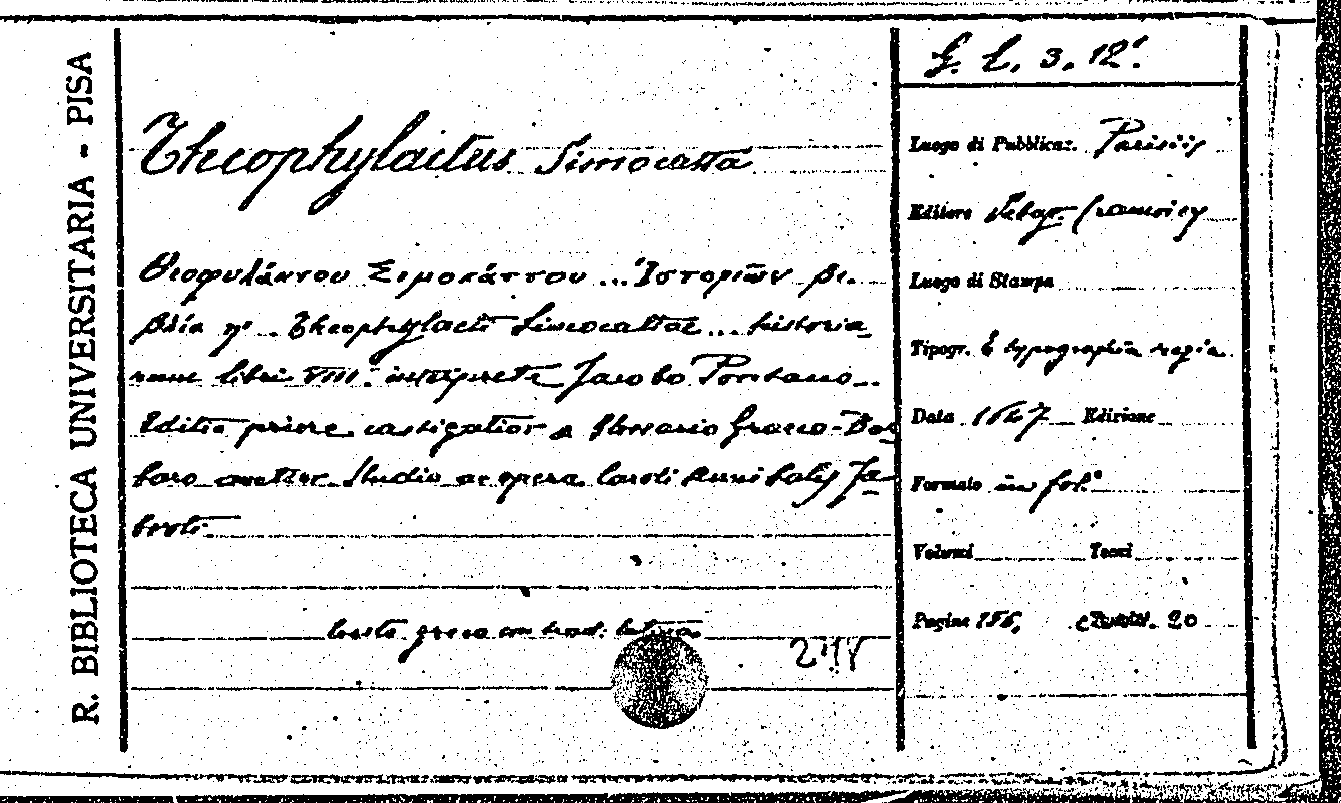 R. BIBLIOTECA UNIVERSITARIA - PISA
G. L. 3. 12.
Theophylactus Simocatta
Θεοφυλάκτου Σιμοκάττου ... Ἱστοριῶν βι-
βλία η'. Theophylacti Simocattae ... historia
rum libri VIII. interprete Jacobo Pontano..
Editio priore castigatior et Glossario Graeco-Bar
baro auctior Studio ac opera Caroli Annibalis Fa-
broti
testo greco con trad. latina
Luogo di Pubblicaz. Parisiis
Editore Sebast. Cramoisy
Luogo di Stampa
Tipogr. E typographia regia
Data 1647 Edizione
Formato in fol.
Volumi Tomi
Pagine 156, 20